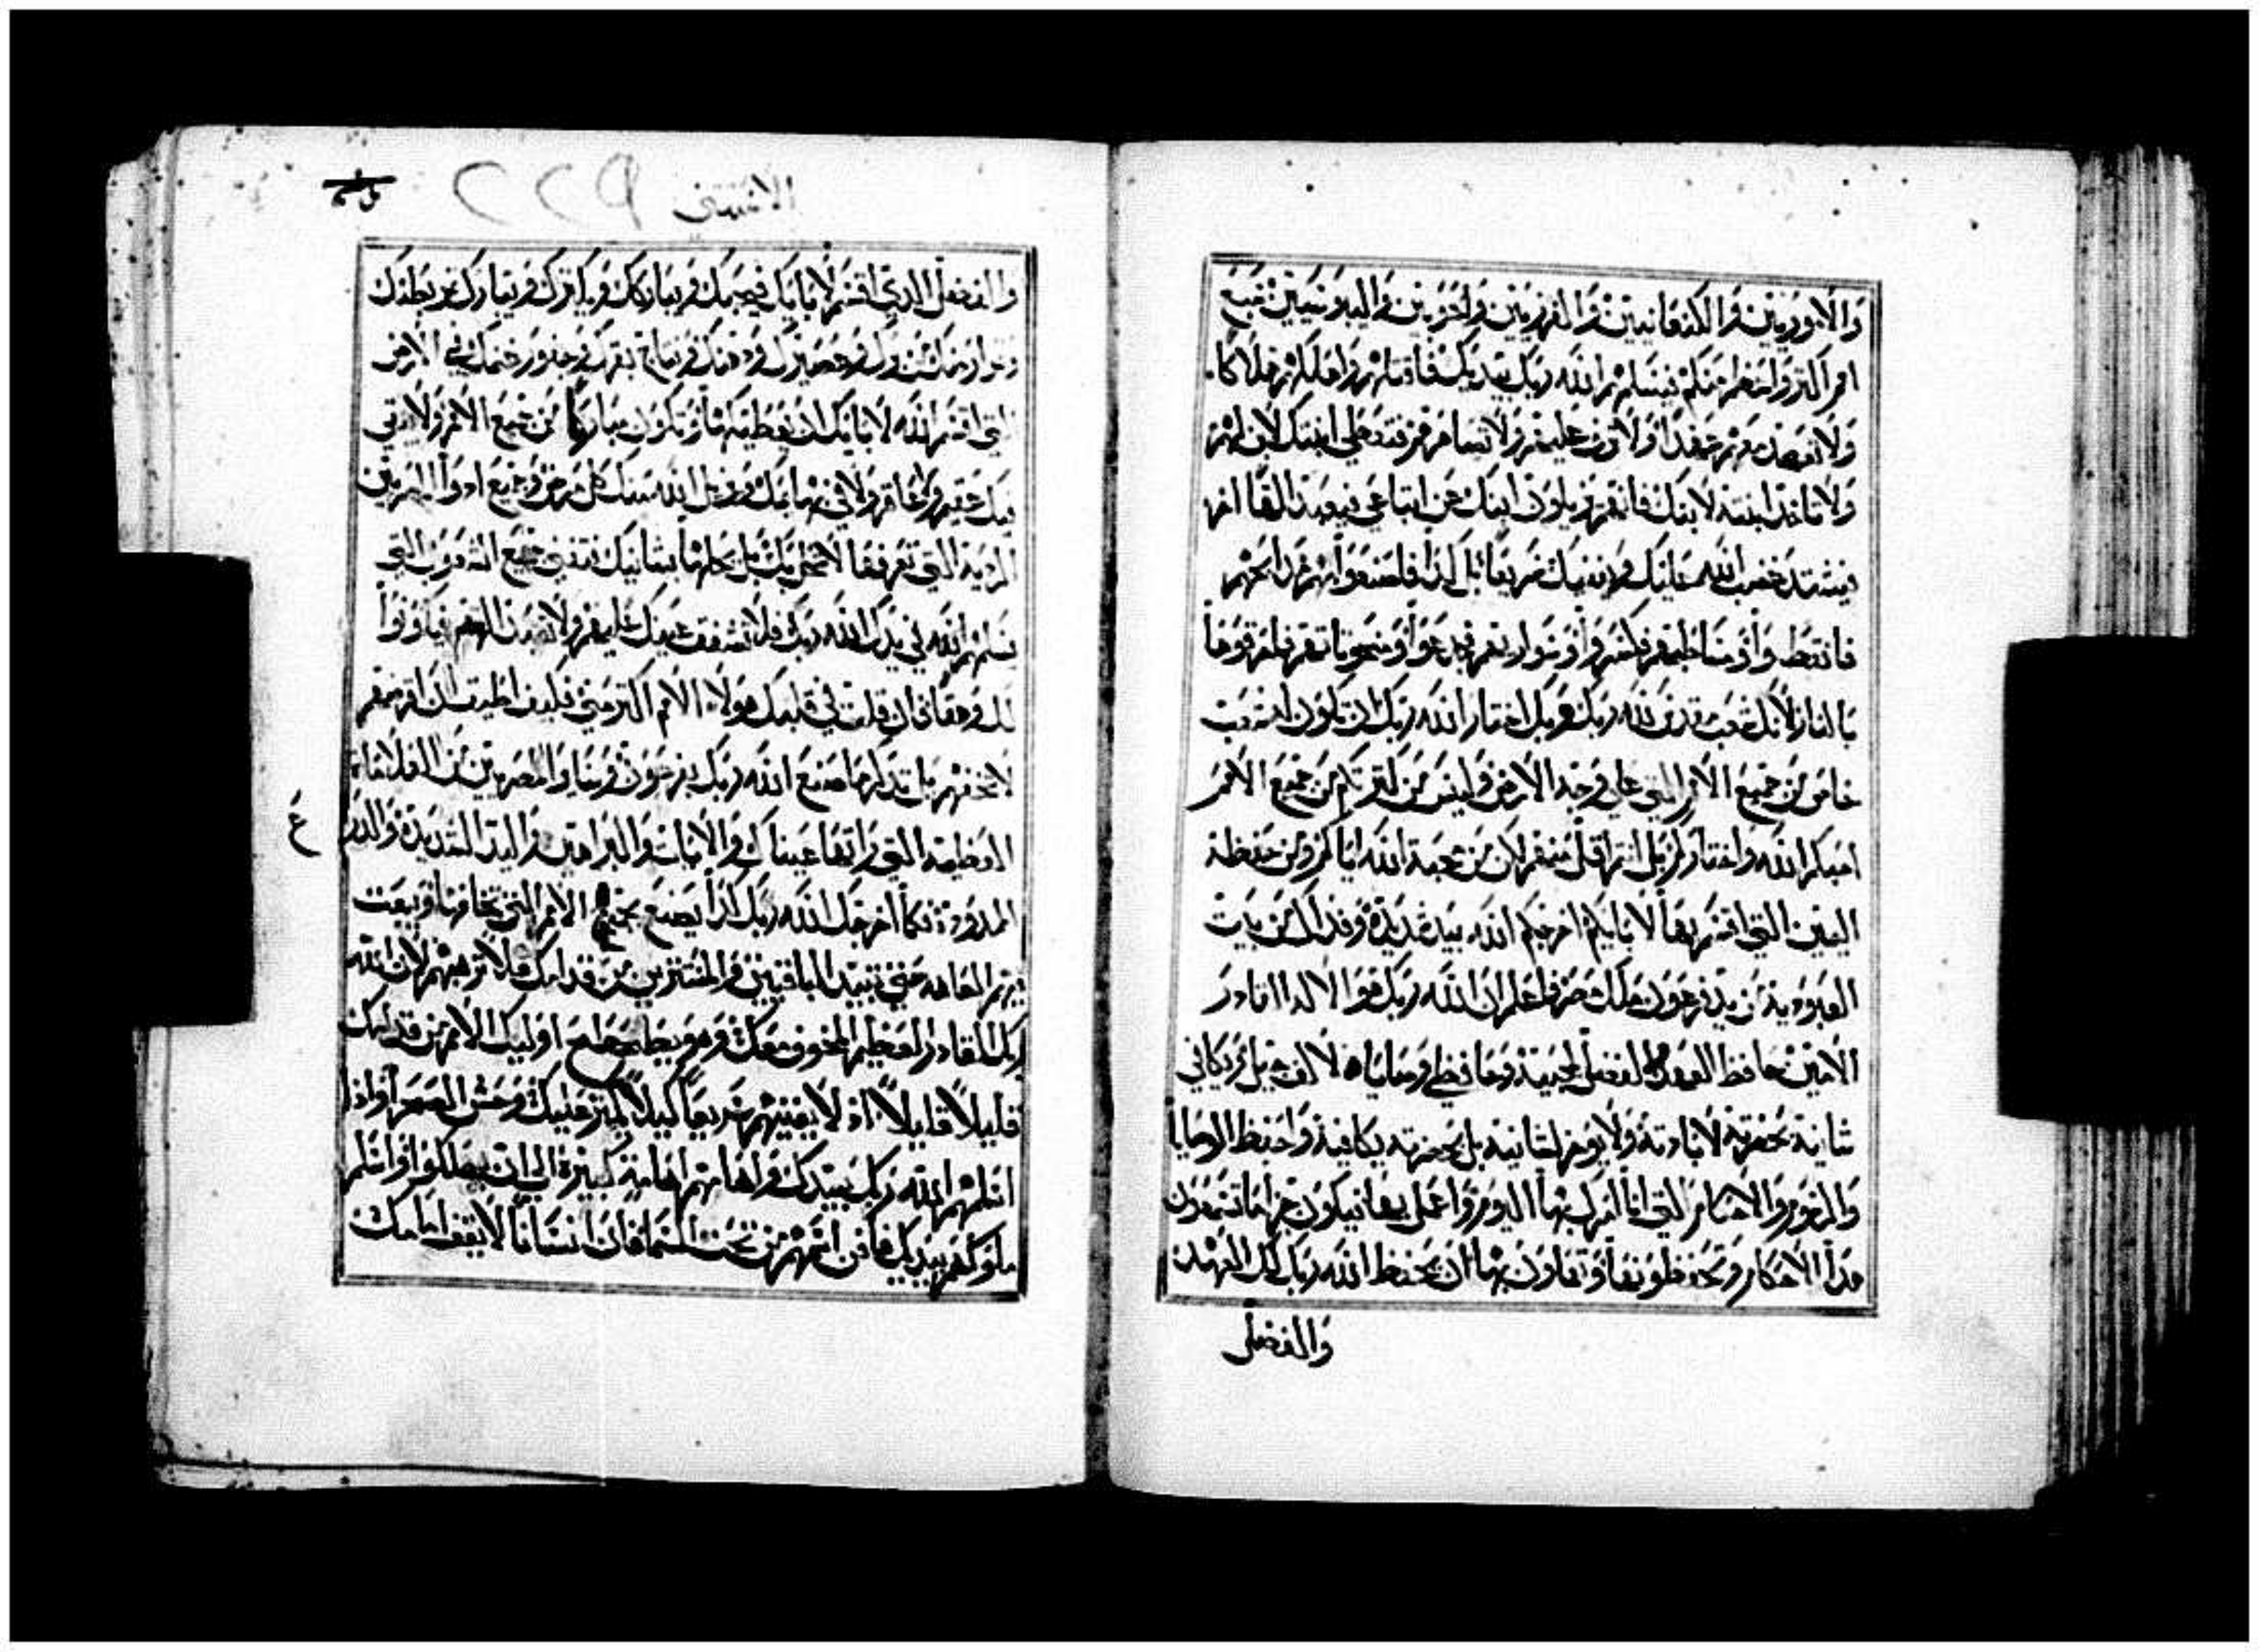 وَالامُوريين وَالكنعانيين وَالفرزيين وَالحَويين وَاليبوسَيين سَبع
امم اكثر وَاعَظم منكم فيسَلمهم الله رَبك بَيديك فاقتلهم وَاهلكهم هَلاكًا
وَلا تعَهَد معهم عَهَدًا وَلا ترث عَليهم وَلا تسَاهرهم فتعطي ابنتك لابنهم
وَلا تاخذ ابنته لابنك فانهم يميلون ابنك عَن اتباعي فيعَبد الهًا اخر
فيشتد غضب الله عَليك وَيفنيك سَريعًا بل كذا فاصنعَوا بهم مذابحهم
فانقضوا وَاصنامهم فكسرَوا وَسَواريهم فاجدعَوا وَمنحوتاتهم فاحرقوهَا
بَالنار لانك شعَب مقدس لله رَبك وَبك اختار الله رَبك ان تكون له شعَب
خاص من جميَع الامم التي عَلي وَجه الارض وَليسَ من كثرتكم من جميَع الامَم
احَبكم الله وَاختاركم بل انتم اقل منهم لكن من محبة الله اياكم وَمن حَفظه
اليمين التي اقسَم بهَا لابايكم اخرجكم الله بيَد شديدَة وَفداك من بَيت
العَبوديه من يد فرعَون ملك مصر فاعلم ان الله رَبك هوَ الاله القادرَ
الامين حَافظ العهد وَالفضل لمحبيه وَحَافظي وَصَاياه لالف جيل وَيكافي
شانيه بحضرته لابادته وَلا يوخر لشانيه بل بحضرته يكافيه وَاحَفظ الوصايا
وَالرسوم وَالاحَكام التي انا امرك بهَا اليَوم وَاعَمل بهَا فيكون جزا مَا تسمعَون
هَذا الاحَكام وَتحفظونهَا وَتعَملون بهَا ان يحَفظ الله رَبك لك العهَد
وَالفضل
الاستثني ٢٢٩
وَالفضل الذي اقسَم لابَايك فيحبَك وَيبَاركك وَيكثرك وَيبَارك ثمر بَطنك
التي اقسَم الله لابَايك ان يعَطيكهَا وَتكون مبَاركًا من جميَع الامم وَلا يبقي
فيك عَقيم وَلا عَاقر وَلا في بهَايمك وَيزيل الله عَنك كل مرض وَجميع ادوا المصريين
الرديه التي تعَرفهَا لا تحل بك بل يحَلها بشانيك فتفني جميَع الشعَوب التي
يسَلمهم الله في يدك الله رَبك فلا تشفق عَينك عَليهم وَلا تعَبد الهتهم فيكونوا
لك وَهقًا فان قلت في قلبك هَولا الامم اكثر مني فكيف اطيق ان اقرضهم
لا تخفهم بل تذكر مَا صنَع الله رَبك بفرعَون وَسَاير المصريين من البلايا
العَظيمه التي رَاتهَا عَيناك وَالايات وَالبراهين وَاليد الشديدة وَالذراع
الممدوَدة فكمَا اخرجك الله رَبك كذا يصنع بجميَع الامم التي تخافهَا وَيبعَث
فيهم العَاهه حَتي يبيد البَاقيين وَالمستترين من قدامك فلا ترهبَهم لان الله
رَبك القادر العَظيم المخوف معَك وَهوَ يبطح اوليك الامم من قدامك
قليلاً قليلاً اذ لا يفنيهم سَريعًا كيلا يكثر عَليك وَحَش الصَحرا وَاذا
اسلمهم الله رَبك بيديك وَاهَانهم اهَانة كبيَرة الي ان يهلكوا وَاسَلم
ملوكهم بيديك فافن اسمهم من تحَت السَما فان انسَانًا لا يقف امَامك